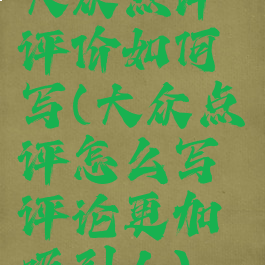 大众点评
评价如何
写(大众点
评怎么写
评论更加
吸引人)